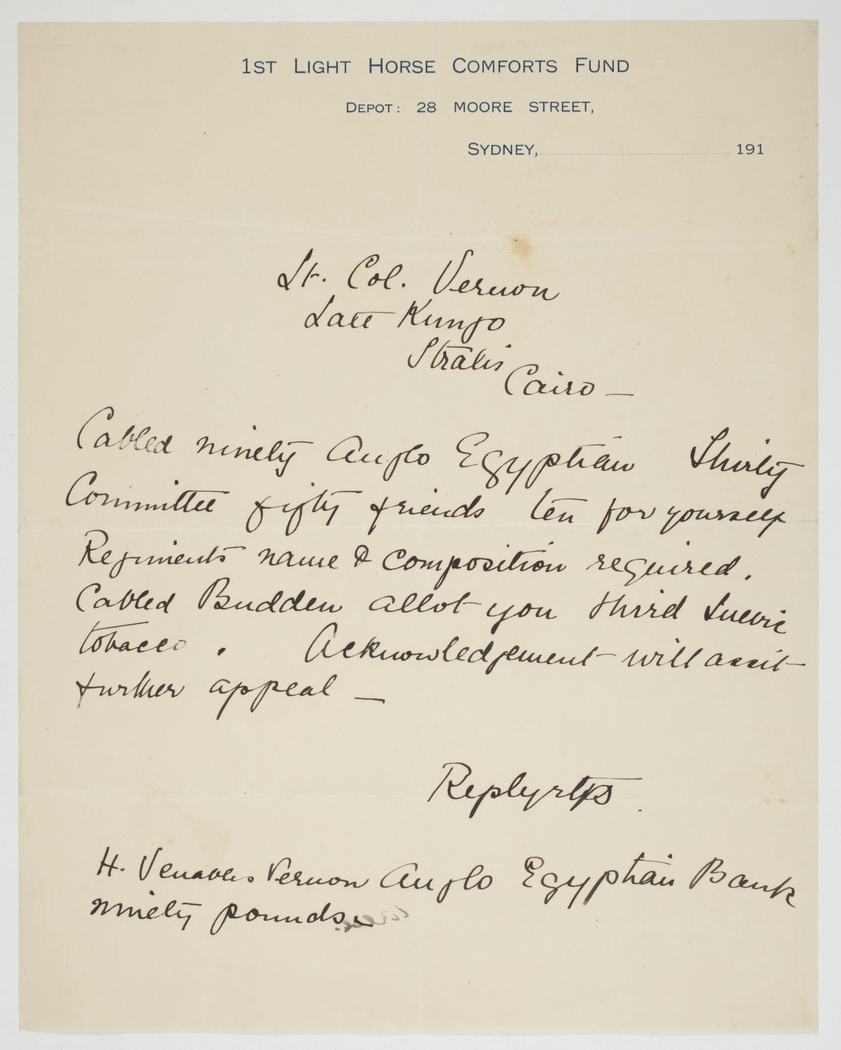 1ST LIGHT HORSE COMFORTS FUND
DEPOT: 28 MOORE STREET,
SYDNEY, 191
Lt. Col. Vernon
Late Kungo
Stralis
Cairo —
Cabled ninety Anglo Egyptian Thirty
Committee fifty friends ten for yourself
Regiments name & composition required.
Cabled Budden allot you third Suevic
tobacco. Acknowledgement will assist
further appeal —
Reply
H. Venables Vernon Anglo Egyptian Bank
ninety pounds.